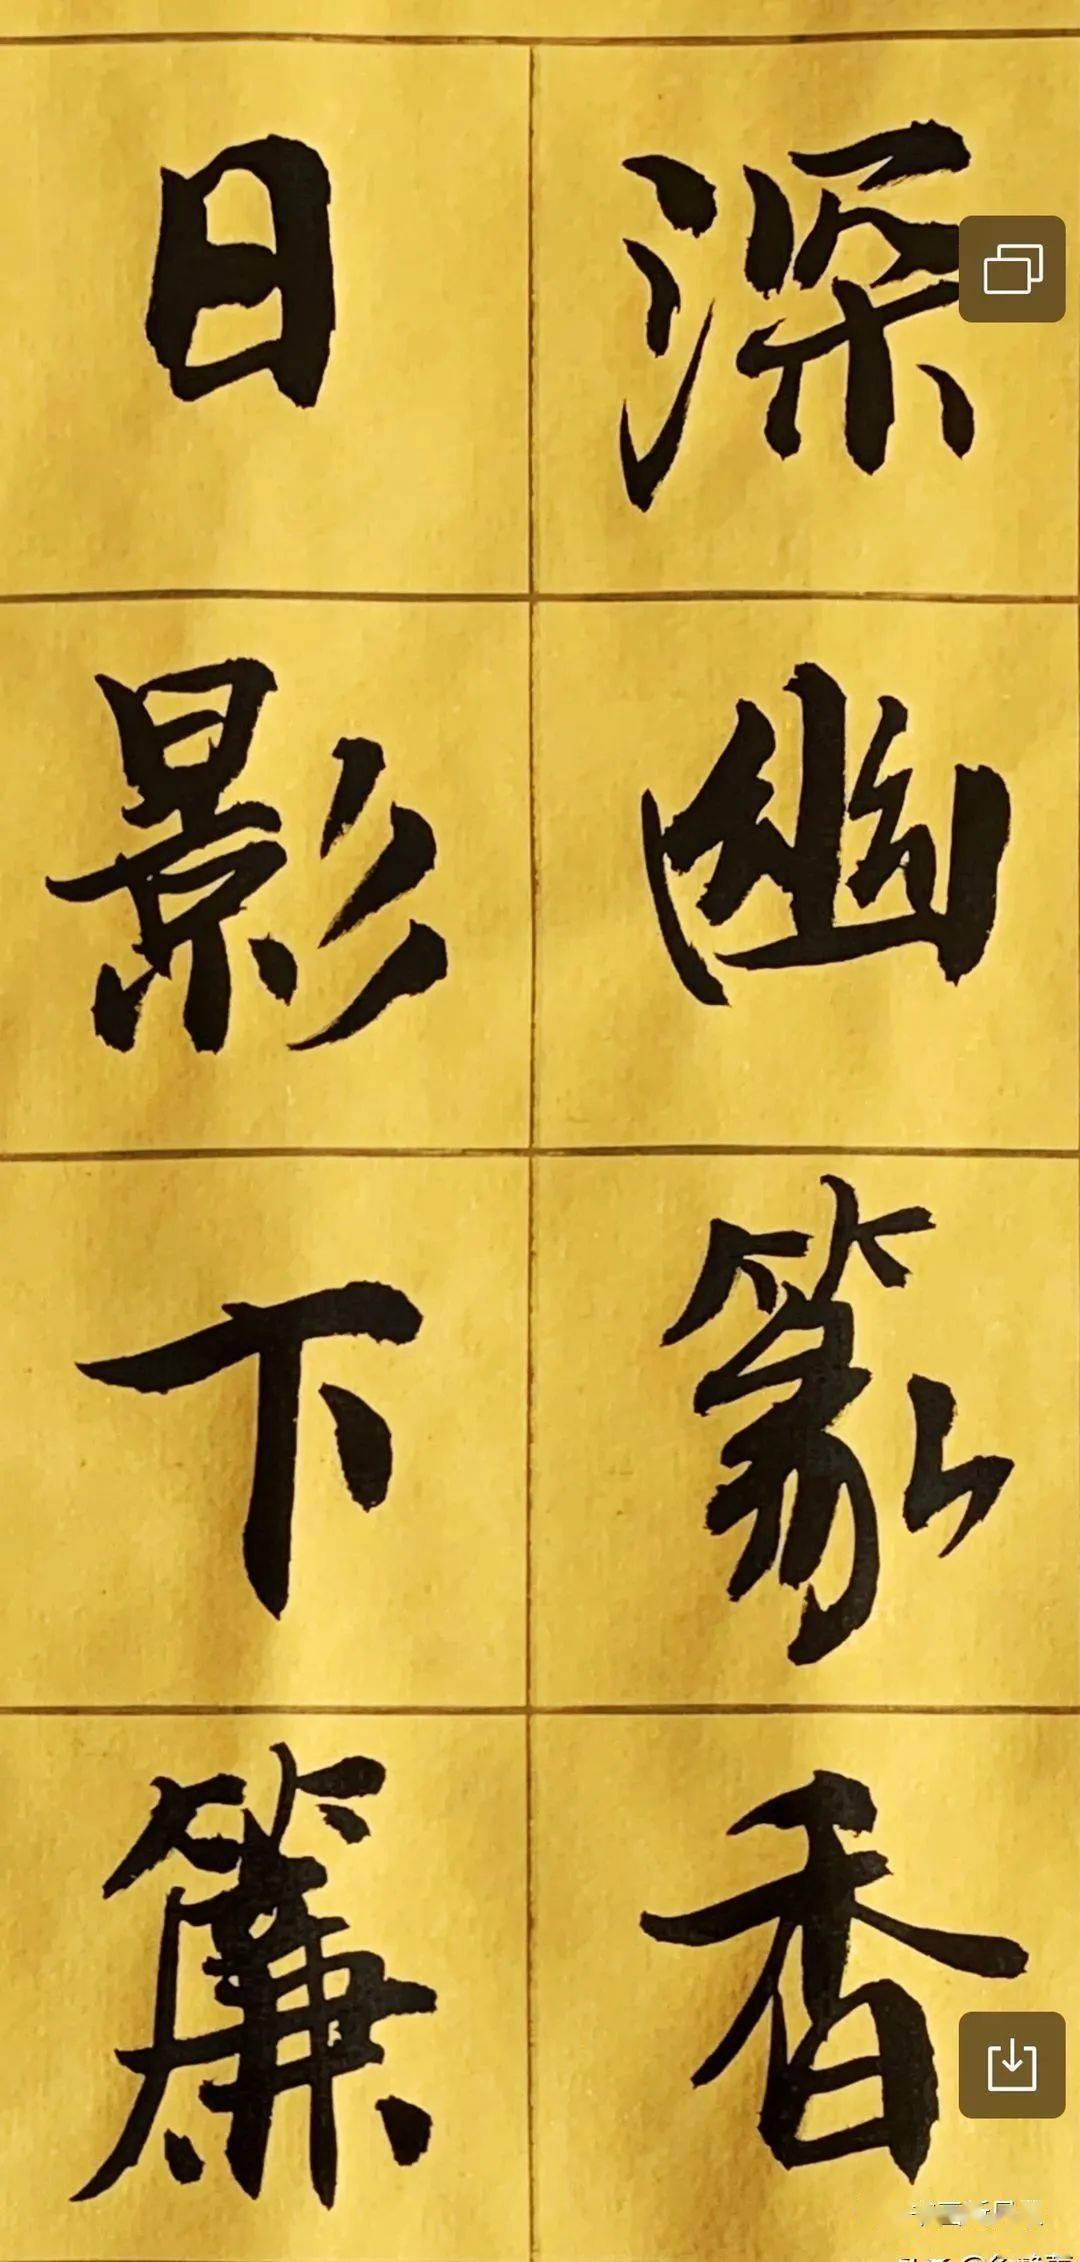 深幽篆香
日影下簾